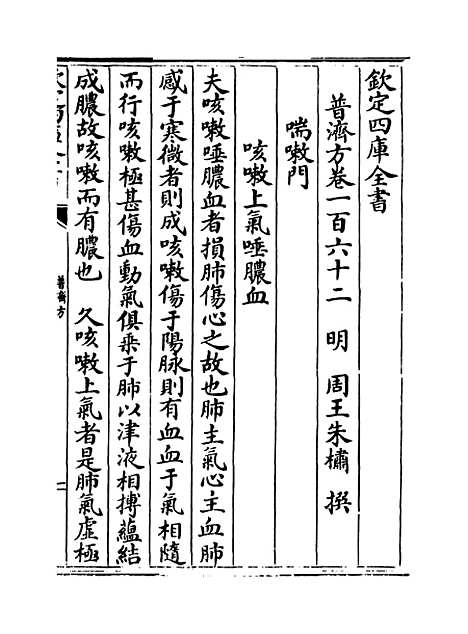 欽定四庫全書
普濟方卷一百六十二　明　周王朱橚　撰
喘嗽門
咳嗽上氣唾膿血
夫咳嗽唾膿血者損肺傷心之故也肺主氣心主血肺
感于寒微者則成咳嗽傷于陽脉則有血血于氣相隨
而行咳嗽極甚傷血動氣俱乗于肺以津液相搏蘊結
成膿故咳嗽而有膿也　久咳嗽上氣者是肺氣虚極
普濟方